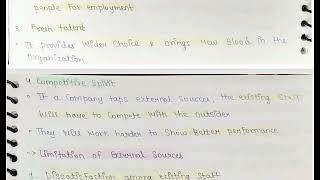 people for employment
3. Fresh talent
• It provides wider choice & brings new Blood in the
organization.
4 Competitive Spirit
• If a Company taps external sources, the existing staff
will have to compete with the outsider
• They will work harder to show Better performance
→ Limitation of External Sources
1. Dissatisfaction among existing staff